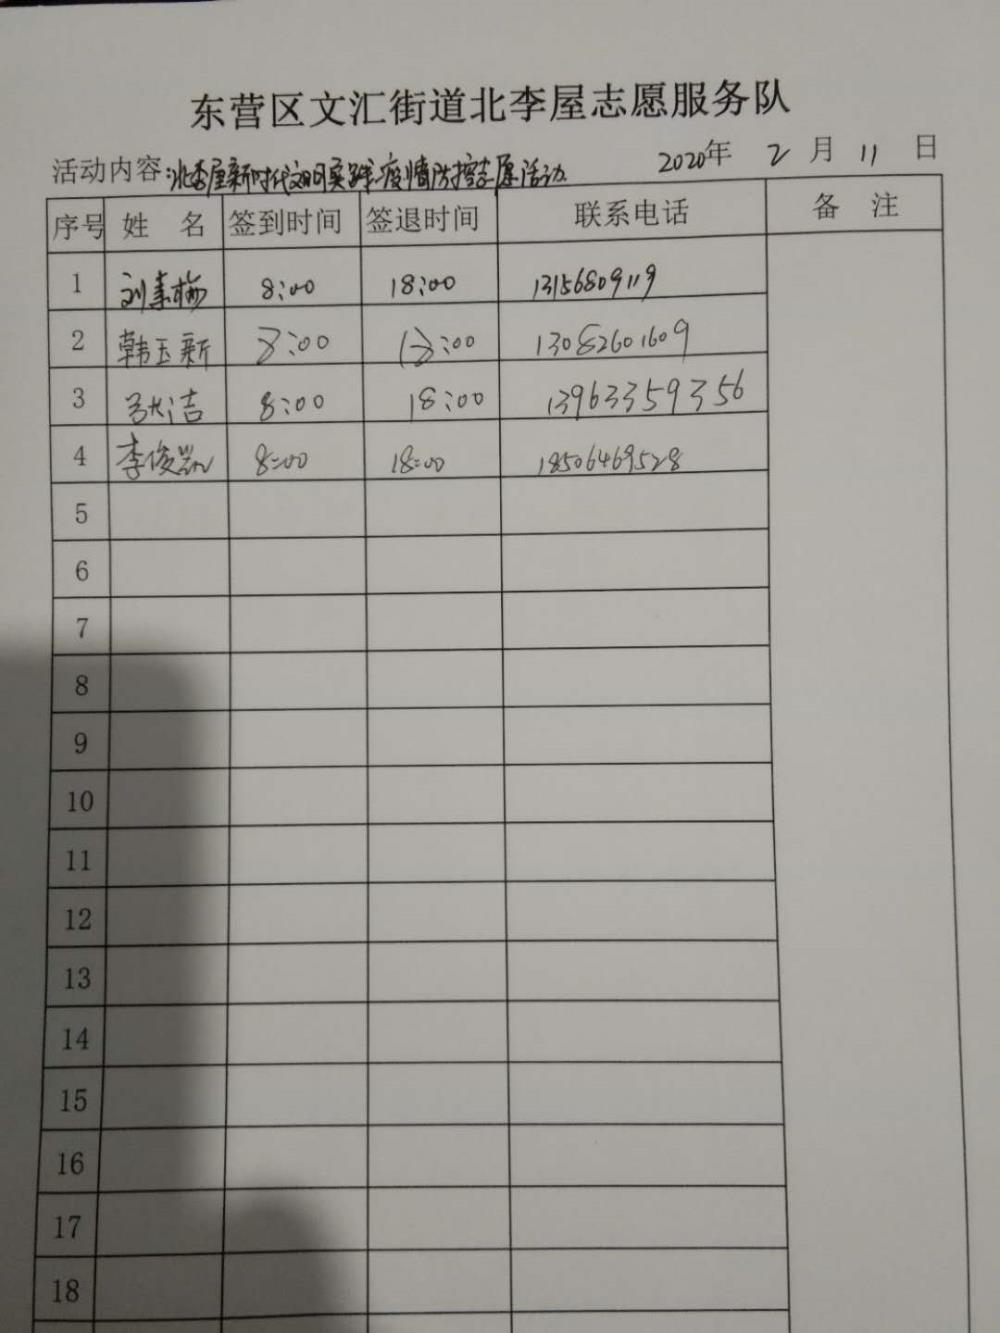 东营区文汇街道北李屋志愿服务队
活动内容:北李屋新时代文明实践疫情防控志愿活动 2020年 2 月 11 日
序号 姓 名 签到时间 签退时间 联系电话 备 注
1 刘素梅 8:00 18:00 13156809119
2 韩玉新 8:00 18:00 13082601609
3 张洁 8:00 18:00 13963359356
4 李俊凯 8:00 18:00 18506469528
5
6
7
8
9
10
11
12
13
14
15
16
17
18